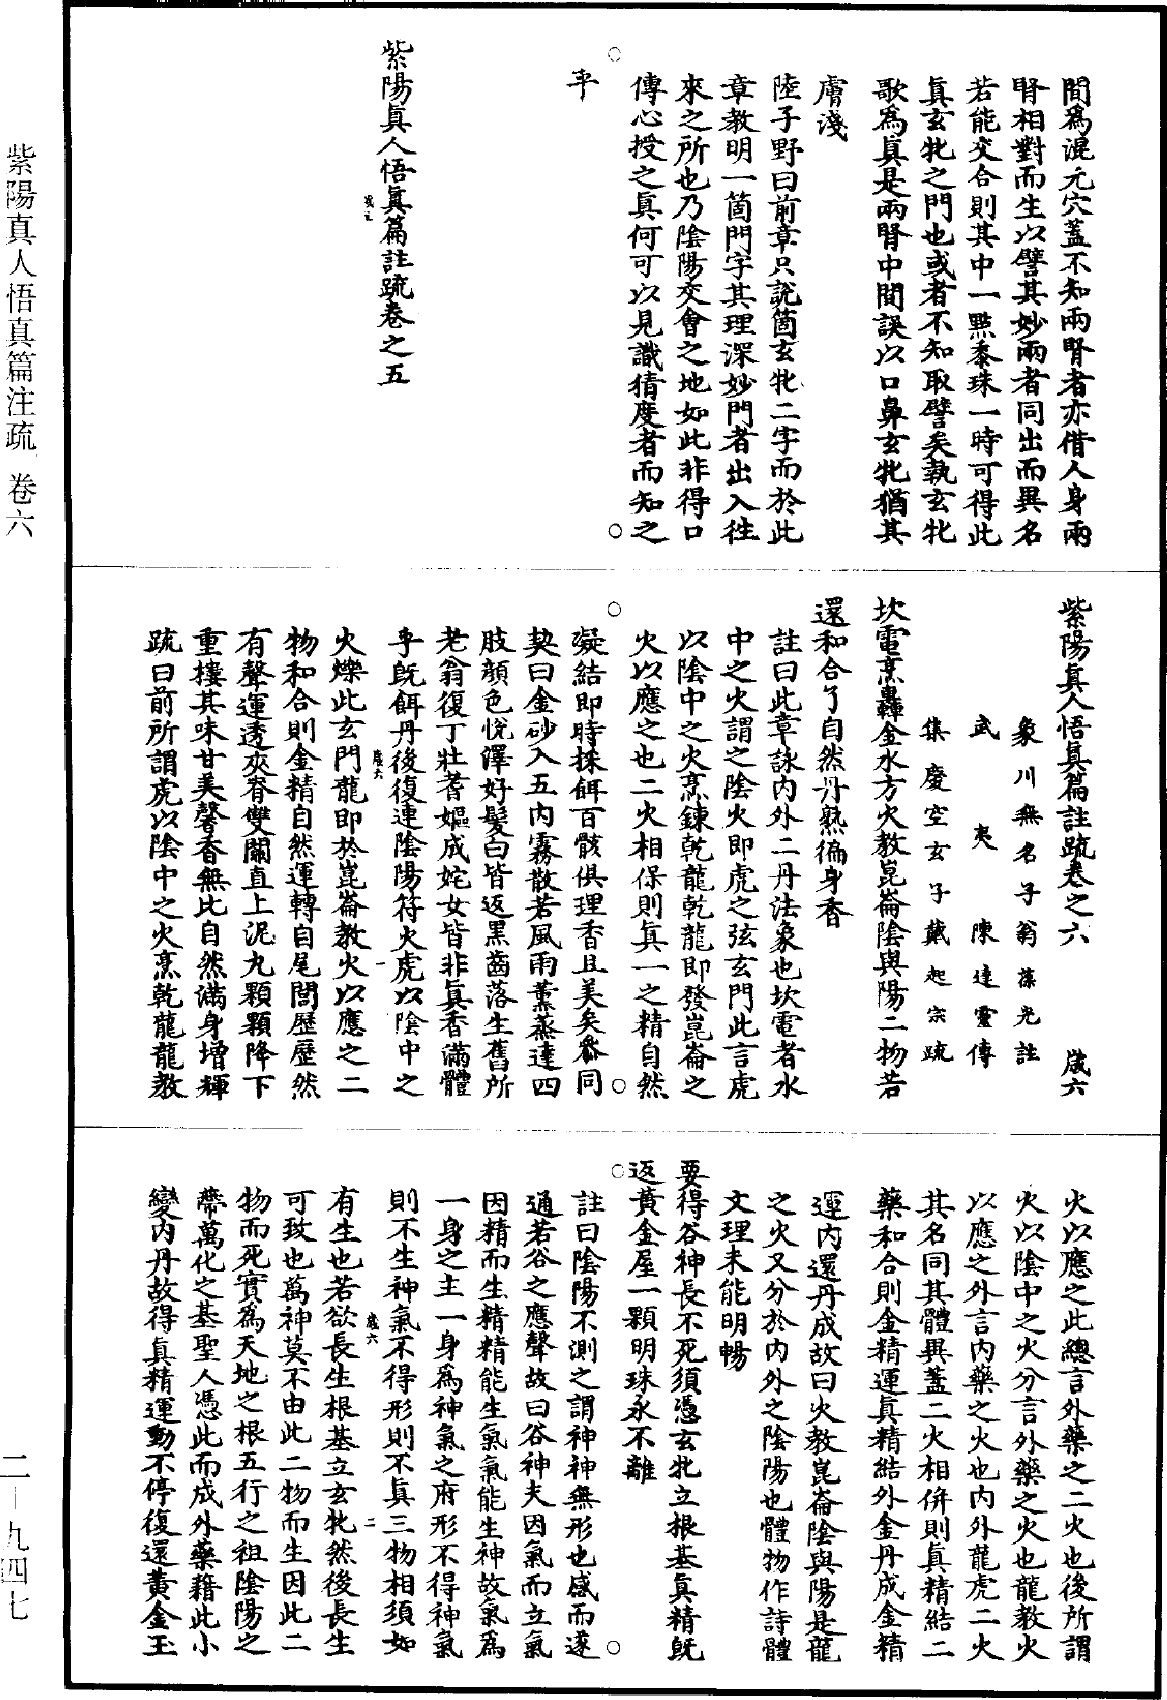 紫陽真人悟真篇注疏　卷六
二－九四七
間爲混元穴蓋不知兩腎者亦借人身兩
腎相對而生以譬其妙兩者同出而異名
若能交合則其中一點黍珠一時可得此
眞玄牝之門也或者不知取譬矣執玄牝
歌爲眞是兩腎中間誤以口鼻玄牝猶其
膚淺
陸子野曰前章只說箇玄牝二字而於此
章教明一箇門字其理深妙門者出入往
來之所也乃陰陽交會之地如此非得口
傳心授之眞何可以見識猜度者而知之
乎
紫陽眞人悟眞篇註疏卷之五
紫陽眞人悟眞篇註疏卷之六　歲六
象川無名子翁葆光註
武夷陳達靈傳
集慶空玄子戴起宗疏
坎電烹轟金水方火教崑崙陰與陽二物若
還和合了自然丹熟徧身香
註曰此章詠內外二丹法象也坎電者水
中之火謂之陰火即虎之弦玄門此言虎
以陰中之火烹鍊乾龍乾龍即發崑崙之
火以應之也二火相保則眞一之精自然
凝結即時採餌百骸俱理香且美矣參同
契曰金砂入五內霧散若風雨薰蒸達四
肢顔色悅澤好髮白皆返黑齒落生舊所
老翁復丁壯耆嫗成姹女皆非眞香滿體
乎既餌丹後復運陰陽符火虎以陰中之
歲六　一
火爍此玄門龍即於崑崙教火以應之二
物和合則金精自然運轉自尾閭歷歷然
有聲運透夾脊雙關直上泥丸顆顆降下
重樓其味甘美馨香無比自然滿身增輝
疏曰前所謂虎以陰中之火烹乾龍龍教
火以應之此總言外藥之二火也後所謂
火以陰中之火分言外藥之火也龍教火
以應之外言內藥之火也內外龍虎二火
其名同其體異蓋二火相併則眞精結二
藥和合則金精運眞精結外金丹成金精
運內還丹成故曰火教崑崙陰與陽是龍
之火又分於內外之陰陽也體物作詩體
文理未能明暢
要得谷神長不死須憑玄牝立根基眞精既
返黃金屋一顆明珠永不離
註曰陰陽不測之謂神神無形也感而遂
通若谷之應聲故曰谷神夫因氣而立氣
因精而生精精能生氣氣能生神故氣爲
一身之主一身爲神氣之府形不得神氣
則不生神氣不得形則不眞三物相須如
歲六　二
有生也若欲長生根基立玄牝然後長生
可致也萬神莫不由此二物而生因此二
物而死實爲天地之根五行之祖陰陽之
蔕萬化之基聖人憑此而成外藥藉此小
變內丹故得眞精運動不停復還黃金玉